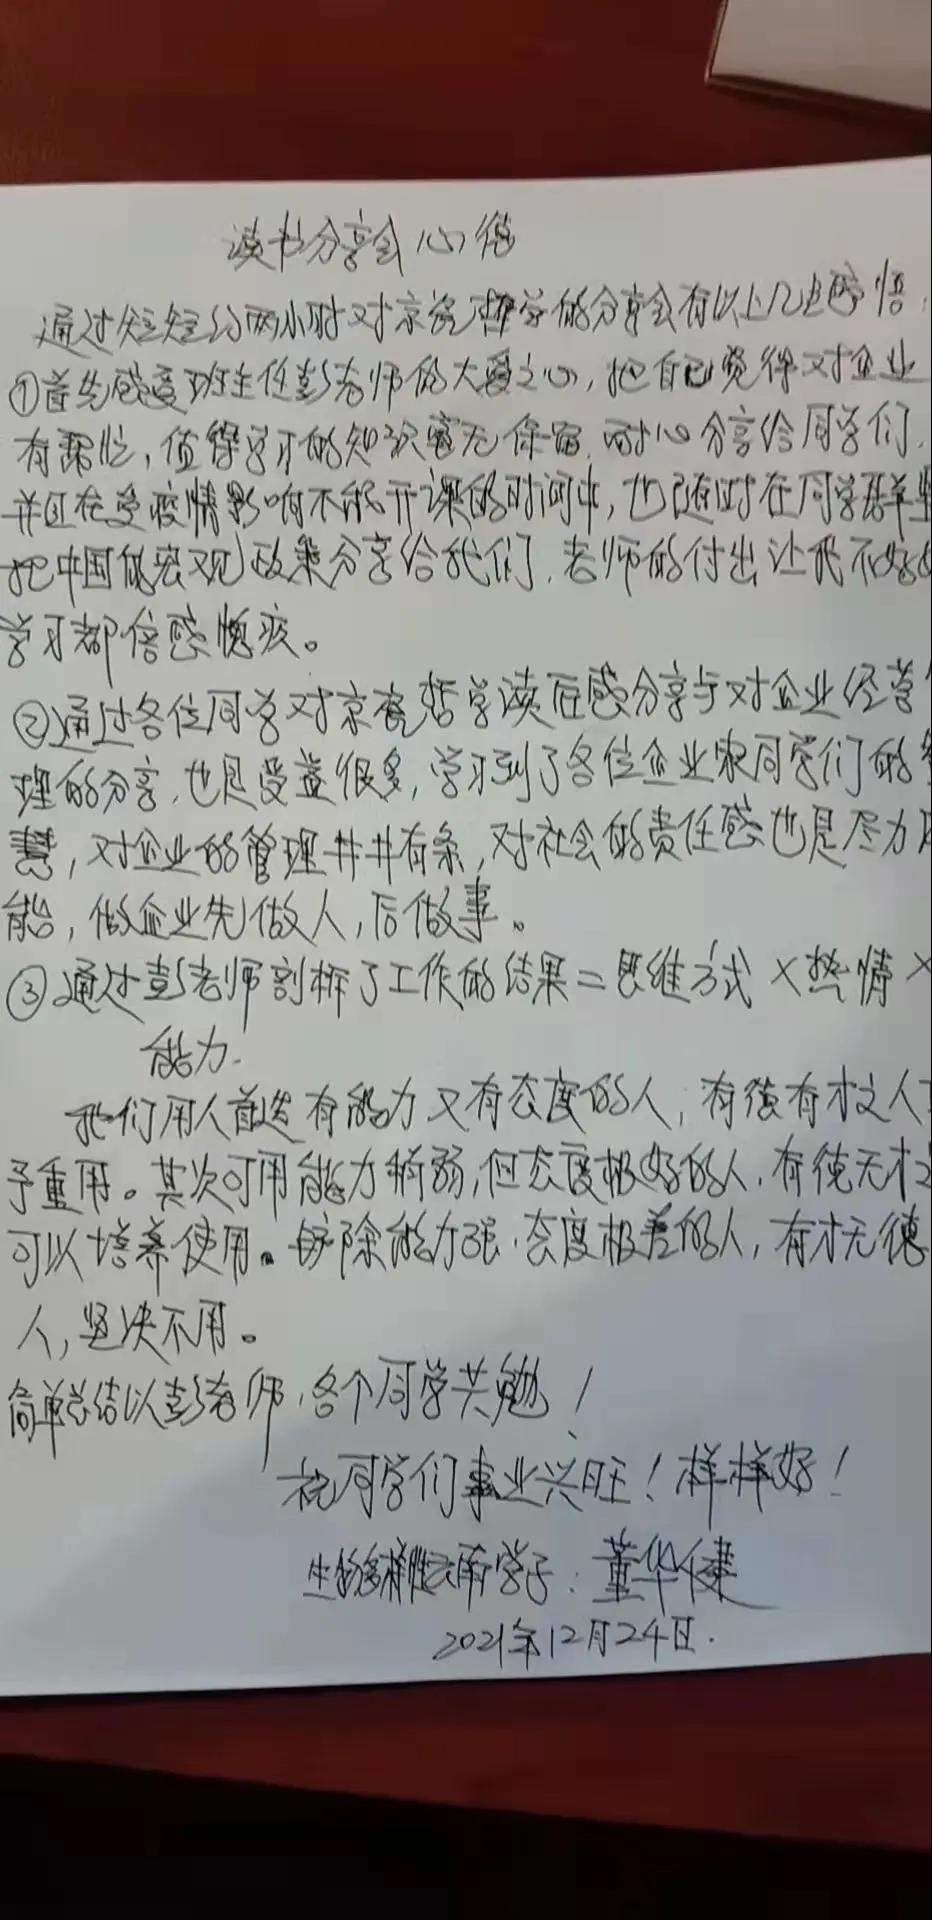 读书分享会心得
通过短短的两小时对京瓷哲学的分享会有以上几点感悟
①首先感受班主任彭老师的大爱之心，把自己觉得对企业
有帮忙，值得学习的知识毫无保留，耐心分享给同学们，
并且在受疫情影响不能开课的时间中，也随时在同学群里
把中国低宏观政策分享给我们，老师的付出让我不好好
学习都倍感愧疚。
②通过各位同学对京瓷哲学读后感分享与对企业经营
理的分享，也是受益很多，学习到了各位企业家同学们的
慧，对企业的管理井井有条，对社会的责任感也是尽力
能，做企业先做人，后做事。
③通过彭老师剖析了工作的结果=思维方式×热情×
能力.
我们用人首选有能力又有态度的人，有德有才之人
予重用。其次可用能力稍弱，但态度极好的人，有德无才
可以培养使用。辞除能力强，态度极差的人，有才无德
人，坚决不用。
简单总结以彭老师，各个同学共勉！
祝同学们事业兴旺！样样好！
生物多样性云南学子：董华健
2021年12月24日.